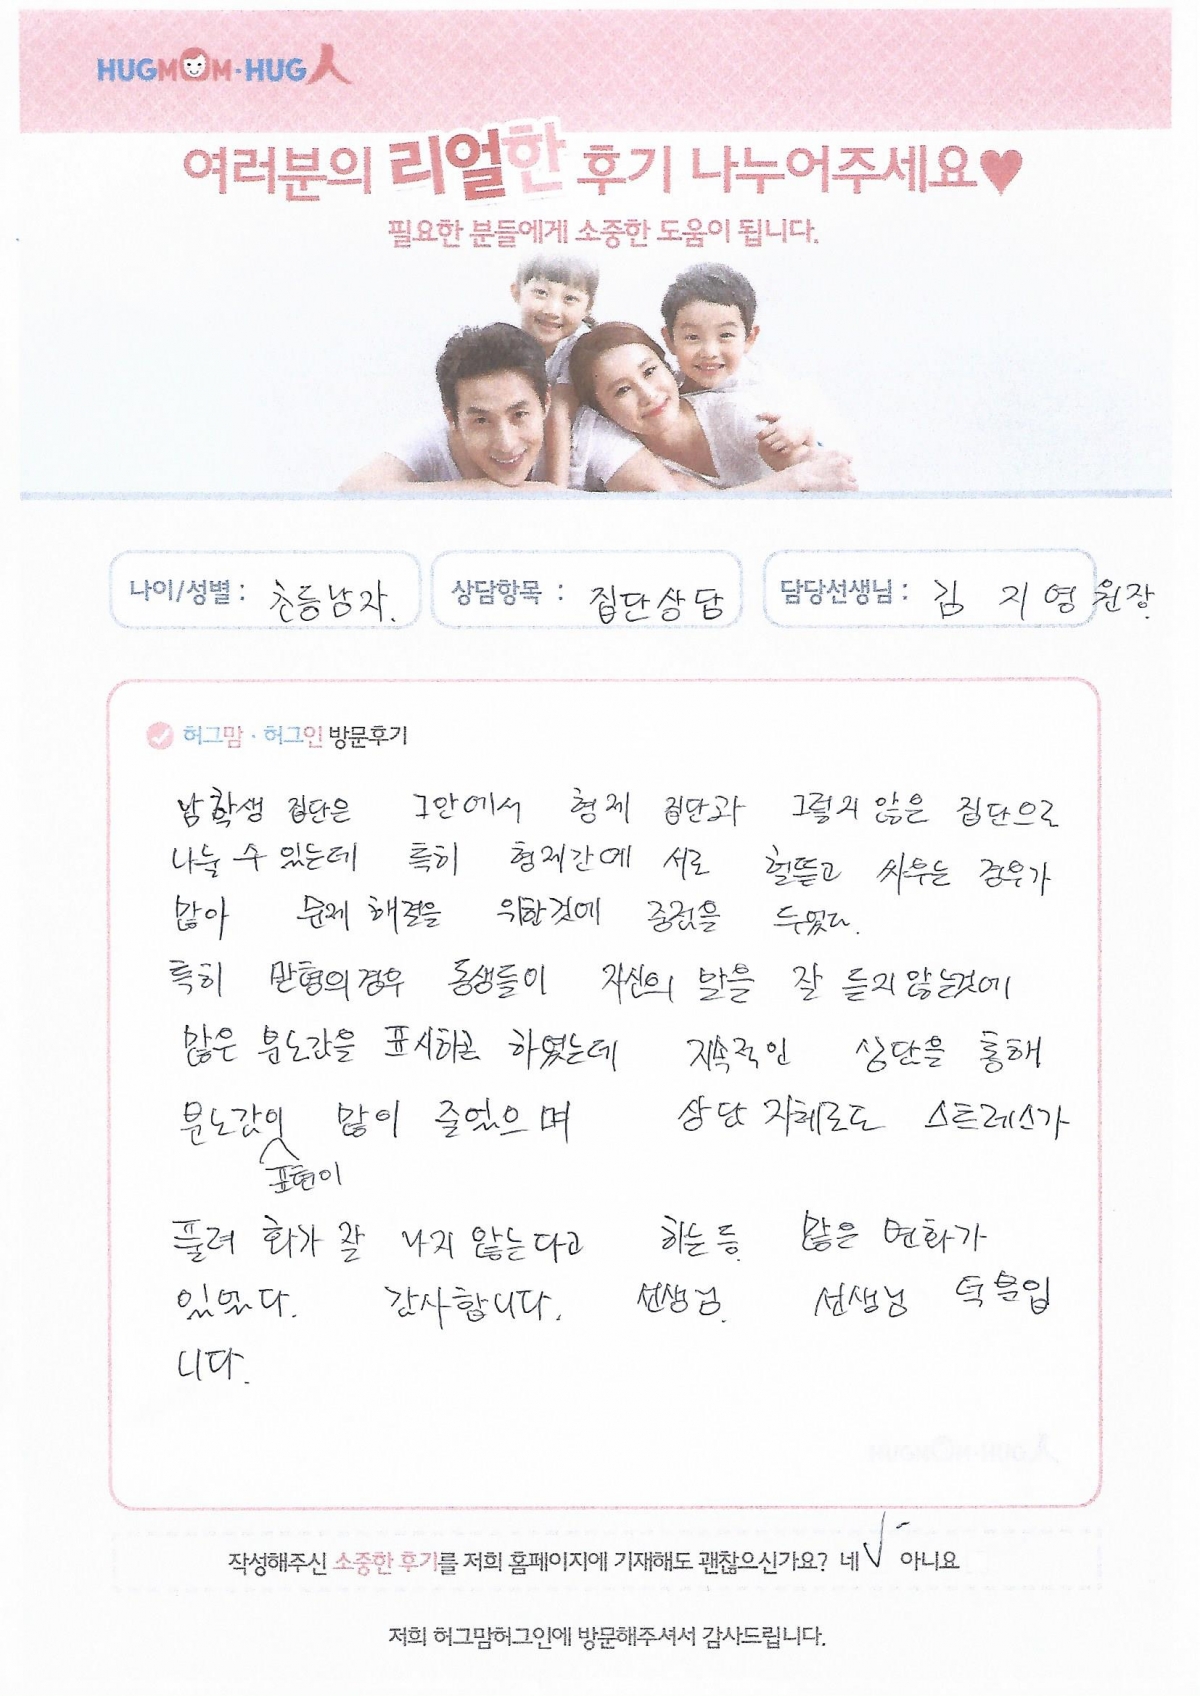 HUGMOM·HUG人
여러분의 리얼한 후기 나누어주세요♥
필요한 분들에게 소중한 도움이 됩니다.
나이/성별 : 초등남자. 상담항목 : 집단상담 담당선생님 : 김 지영 원장
허그맘·허그인 방문후기
남학생 집단은 그안에서 형제 집단과 그렇지 않은 집단으로
나눌 수 있는데 특히 형제간에 서로 헐뜯고 싸우는 경우가
많아 문제 해결을 위한것에 중점을 두었다.
특히 맏형의 경우 동생들이 자신의 말을 잘 듣지 않는것에
많은 분노감을 표시하곤 하였는데 지속적인 상담을 통해
분노감의 많이 줄었으며 상담 자체로도 스트레스가
표현이
풀려 화가 잘 나지 않는다고 하는등 많은 변화가
있었다. 감사합니다. 선생님. 선생님 덕분입
니다.
작성해주신 소중한 후기를 저희 홈페이지에 기재해도 괜찮으신가요? 네 √ 아니요
저희 허그맘허그인에 방문해주셔서 감사드립니다.